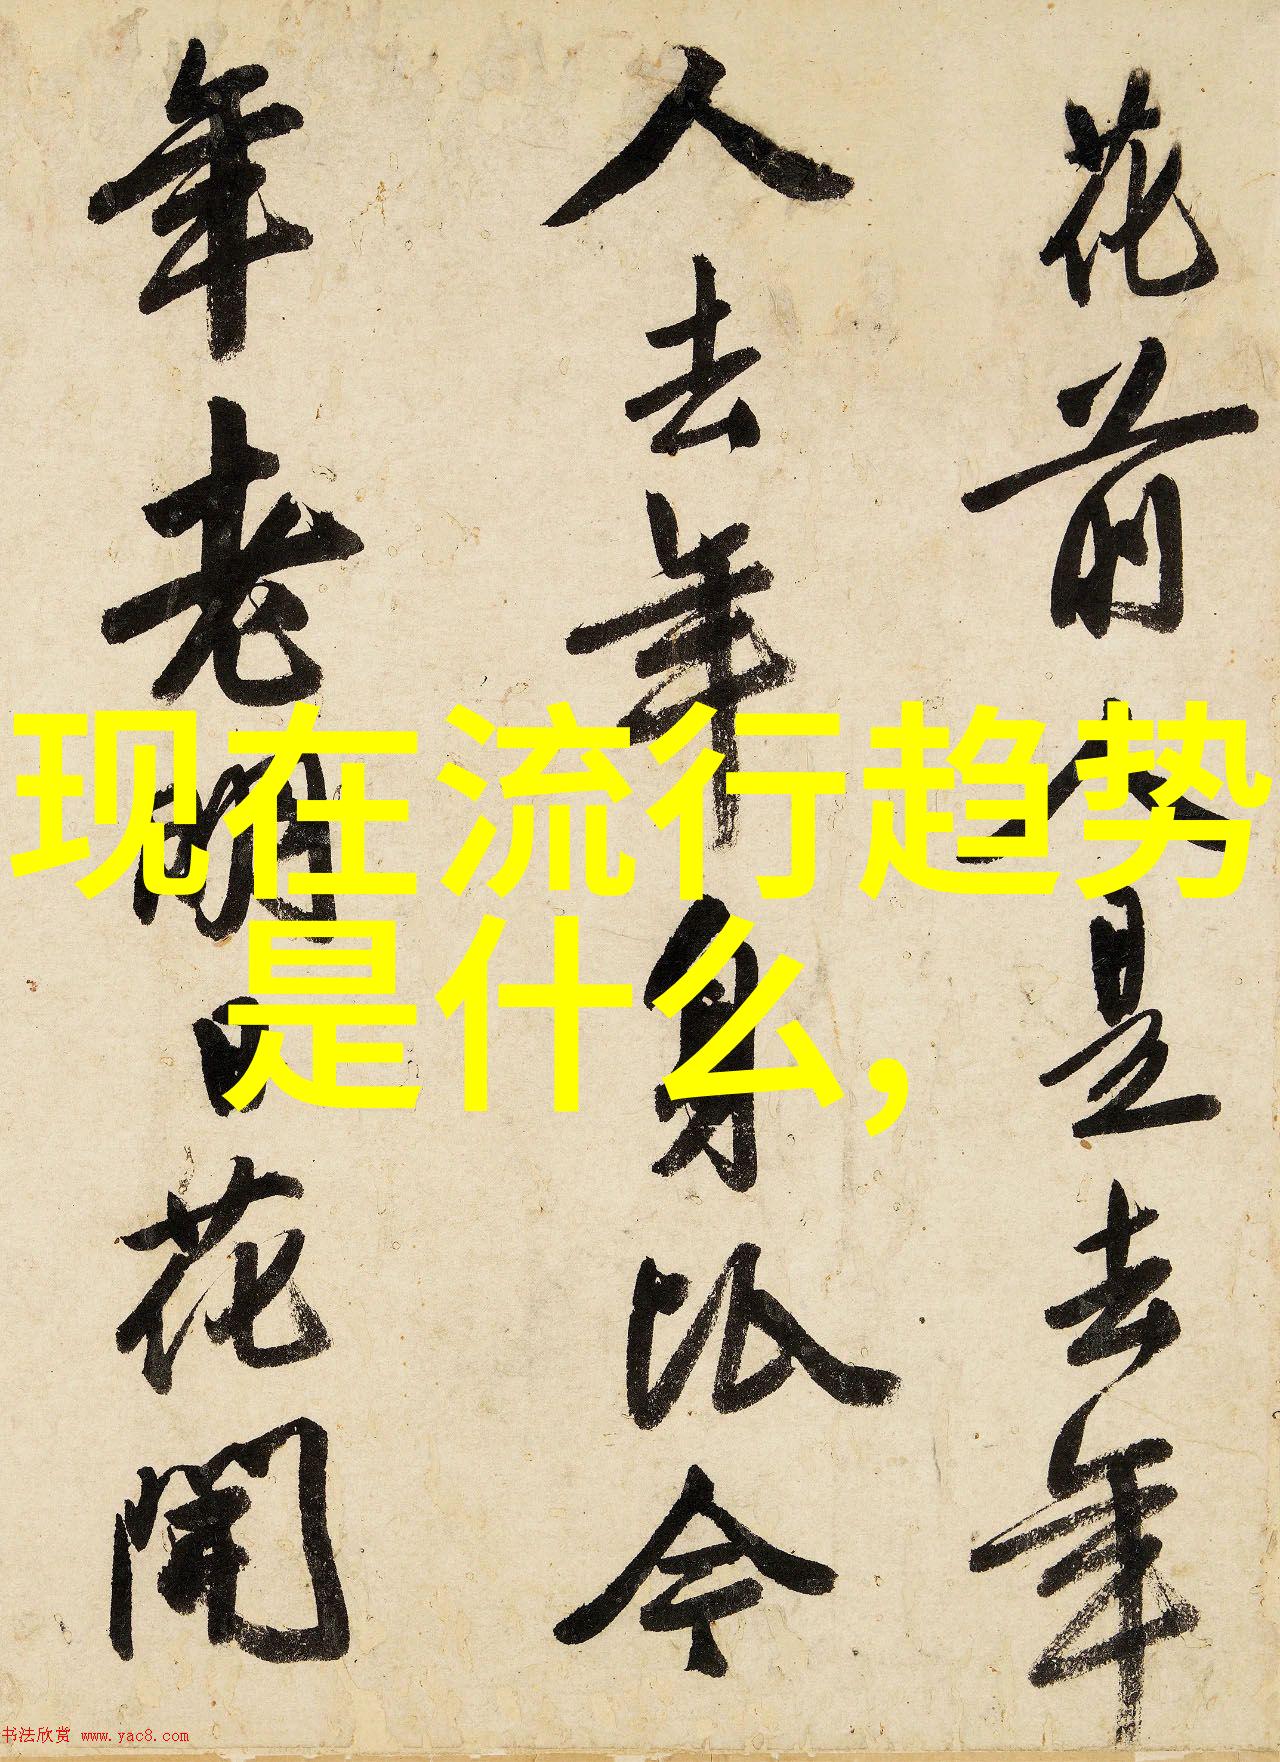 花前人是去年
人去年身比今
年老明日花開
现在流行趋势
是什么,
书法欣赏 www.yac8.com